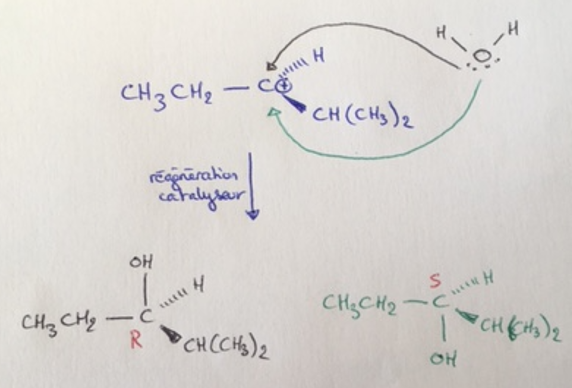 H H
O
H
CH3CH2 — C⊕
CH(CH3)2
régénération
catalyseur
OH
H
CH3CH2 — C
R
CH(CH3)2
S
H
CH3CH2 — C
CH(CH3)2
OH